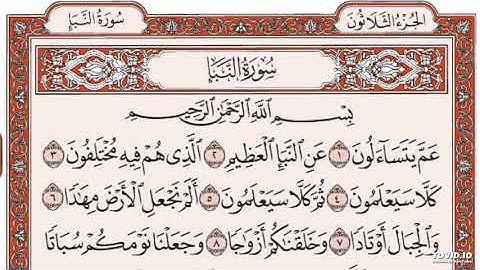 الجزء الثلاثون
سورة النبإ
سورة النبإ
بسم الله الرحمن الرحيم
عم يتساءلون ١ عن النبإ العظيم ٢ الذي هم فيه مختلفون ٣
كلا سيعلمون ٤ ثم كلا سيعلمون ٥ ألم نجعل الأرض مهادا ٦
والجبال أوتادا ٧ وخلقناكم أزواجا ٨ وجعلنا نومكم سباتا
TOVID.IO